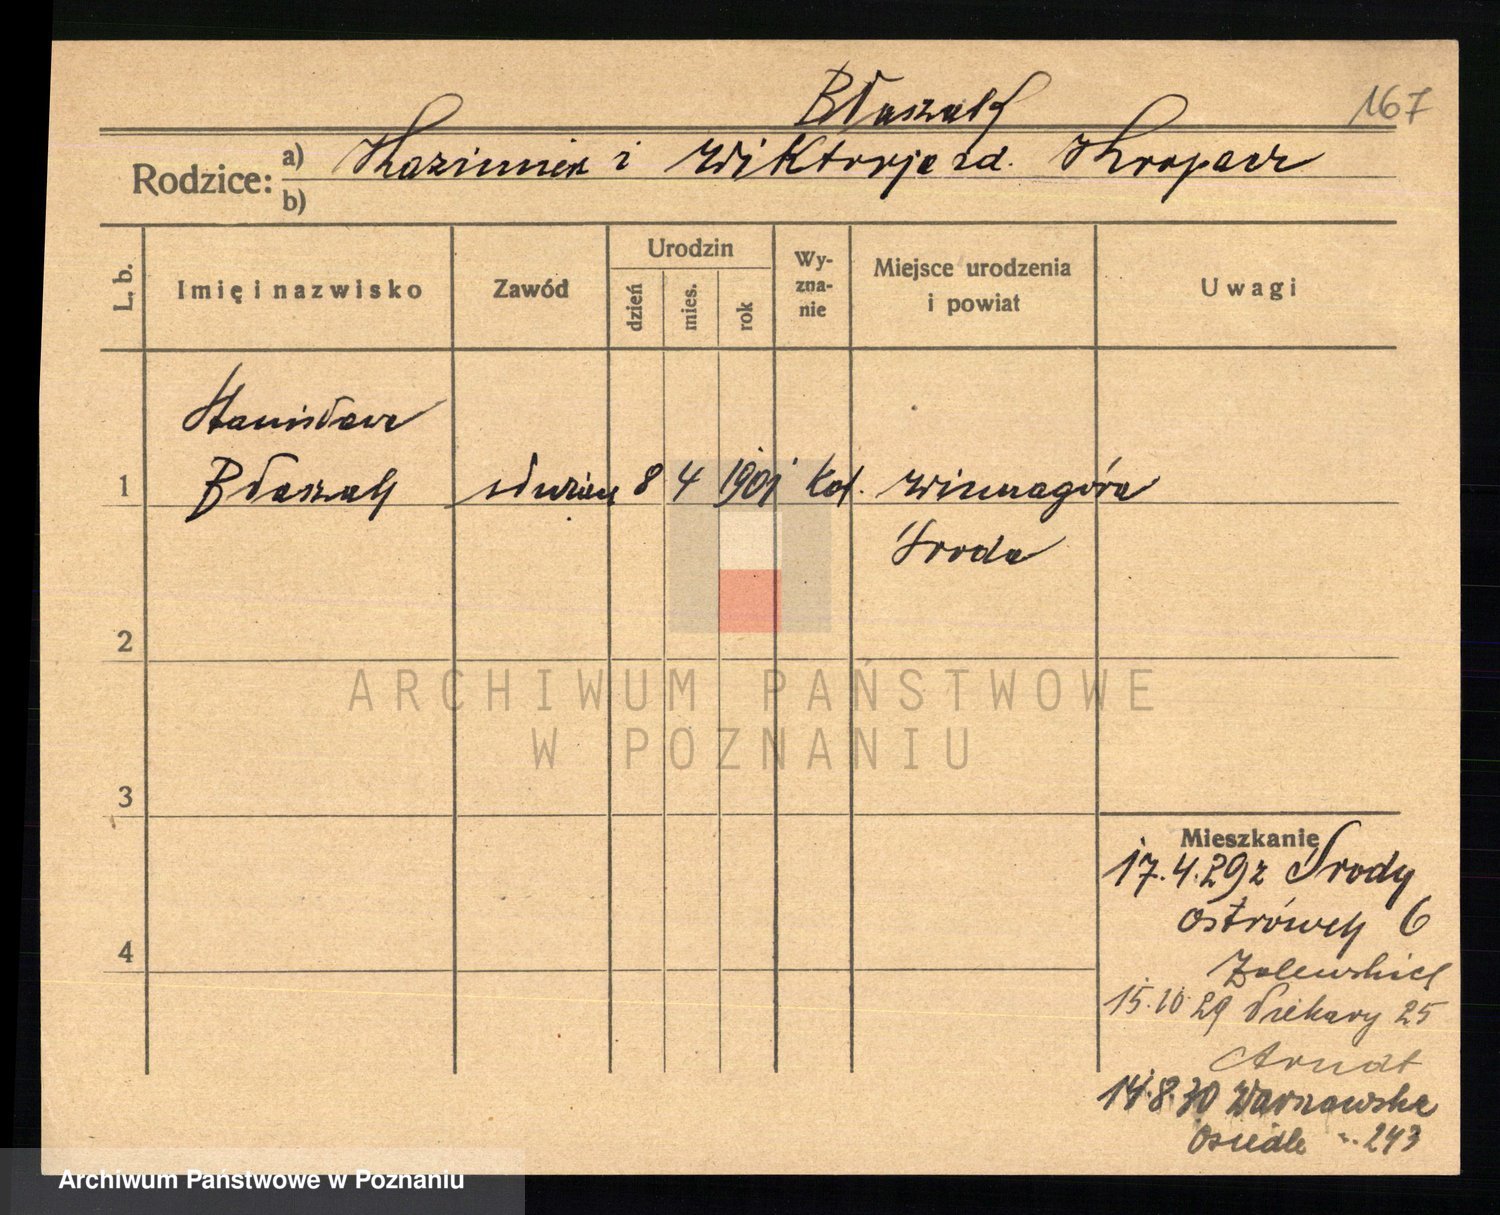 Błaszak
167
Rodzice: a) Kazimierz i Wiktorja zd.
b)
L. b. Imię i nazwisko Zawód Urodzin dzień mies. rok Wyznanie Miejsce urodzenia i powiat Uwagi
Stanisława
1 Błaszak 8 4 1901 kat. Winnagóra
Środa
2
ARCHIWUM PAŃSTWOWE
W POZNANIU
3
4
Mieszkanie
17.4.29 z Środy
Ostrówek 6
Zalewskich
15.10 29 Piekary 25
Arndt
14.8.30 Warszawska
Osiedle 243
Archiwum Państwowe w Poznaniu